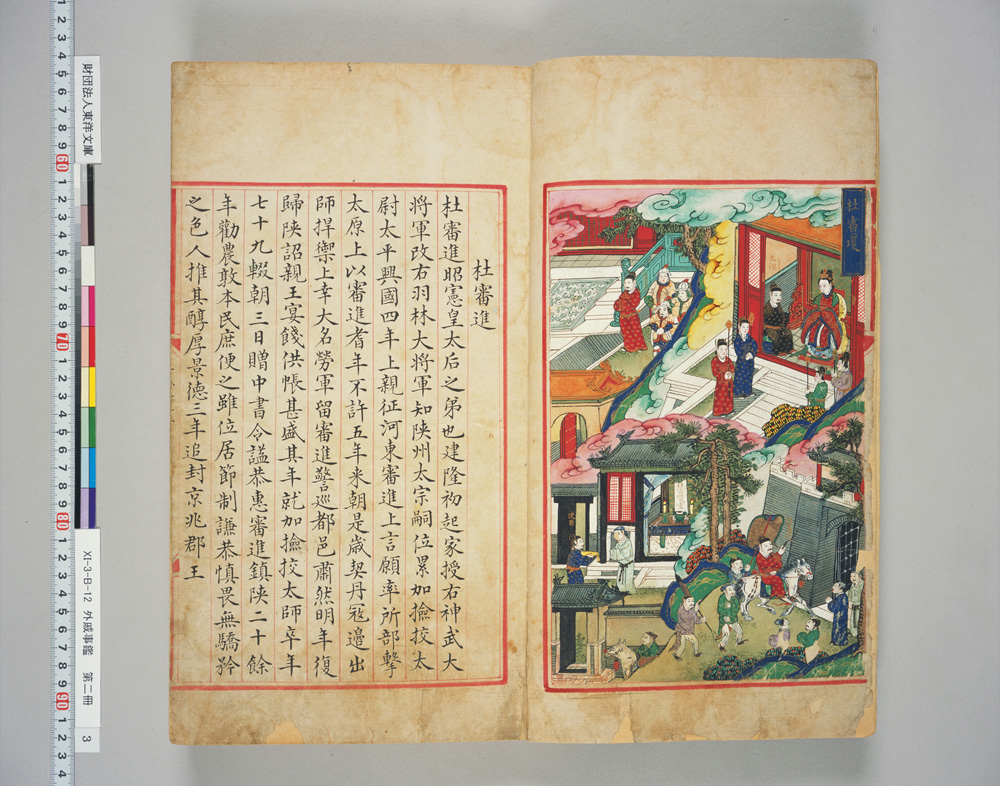 杜審進
杜審進
杜審進昭憲皇太后之弟也建隆初起家授右神武大
將軍改右羽林大將軍知陝州太宗嗣位累加撿挍太
尉太平興國四年上親征河東審進上言願率所部擊
太原上以審進耆年不許五年来朝是歲契丹冦邊出
師捍禦上幸大名勞軍留審進警巡都邑肅然明年復
歸陝詔親王宴餞供帳甚盛其年就加撿挍太師卒年
七十九輟朝三日贈中書令謚恭惠審進鎮陝二十餘
年勸農敦本民庶便之雖位居節制謙恭慎畏無驕矜
之色人推其醇厚景德三年追封京兆郡王
財団法人東洋文庫
XI-3-B-12 外戚事鑑 第二冊 3
1 2 3 4 5 6 7 8 9 60 1 2 3 4 5 6 7 8 9 70 1 2 3 4 5 6 7 8 9 80 1 2 3 4 5 6 7 8 9 90 1 2 3 4